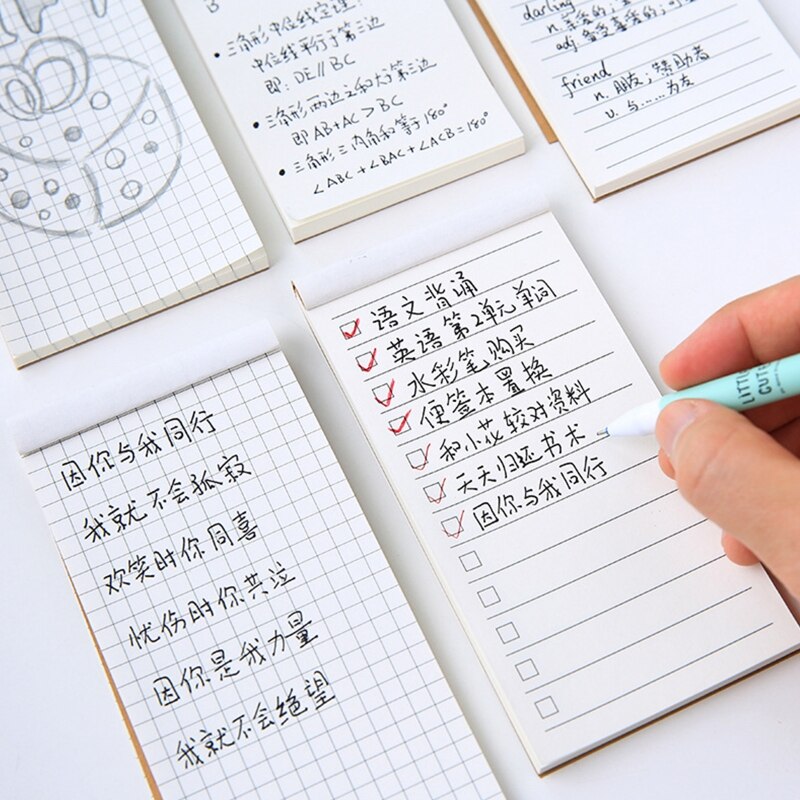 B
三角形中位线定理:
中位线平行于第三边
即: DE // BC
三角形两边之和大于第三边
即 AB+AC > BC
三角形三内角和等于180°
∠ABC + ∠BAC + ∠ACB = 180°
darling
friend
n. 朋友；赞助者
v. 与……为友
语文背诵
英语第2单元单词
水彩笔购买
便签本置换
和小花较对资料
天天归还书术
因你与我同行
LITTLE
因你与我同行
我就不会孤寂
欢笑时你同喜
忧伤时你共泣
因你是我力量
我就不会绝望